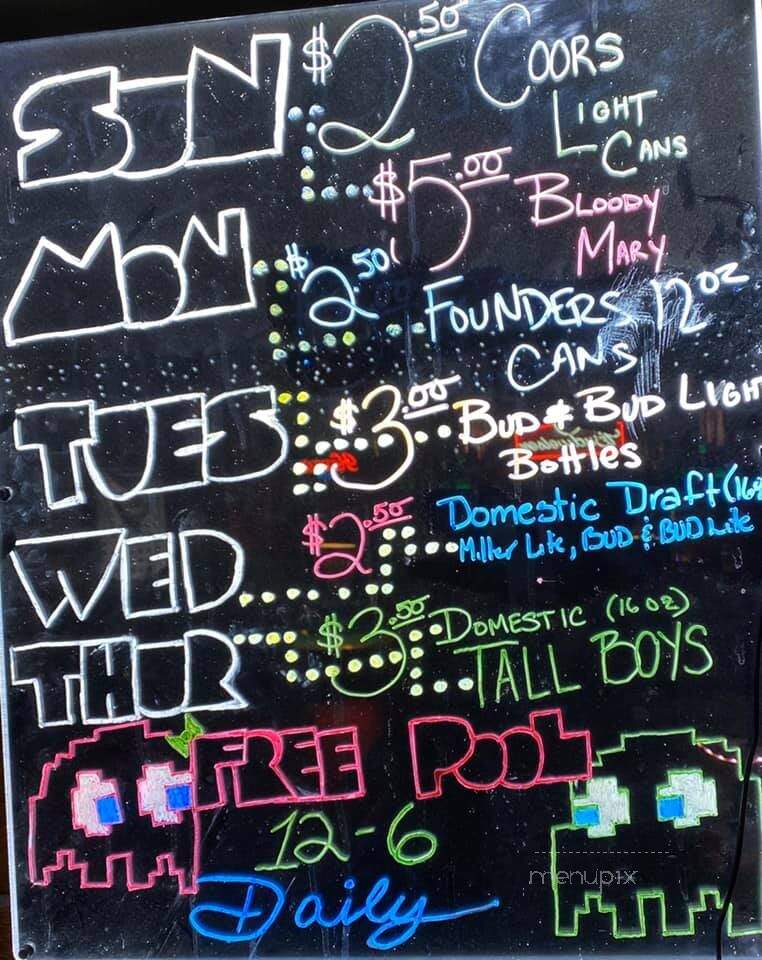 SUN $2.50 COORS
LIGHT
CANS
$5.00 BLOODY
MARY
MON $2.50 FOUNDERS 12 OZ
CANS
TUES $3.00 BUD & BUD LIGH
BOttLes
WED $2.50 Domestic Draft (16
Miller Lite, BUD & BUD Lite
THUR $3.50 DOMESTIC (16 OZ)
TALL BOYS
FREE POOL
12-6
Daily
menupix